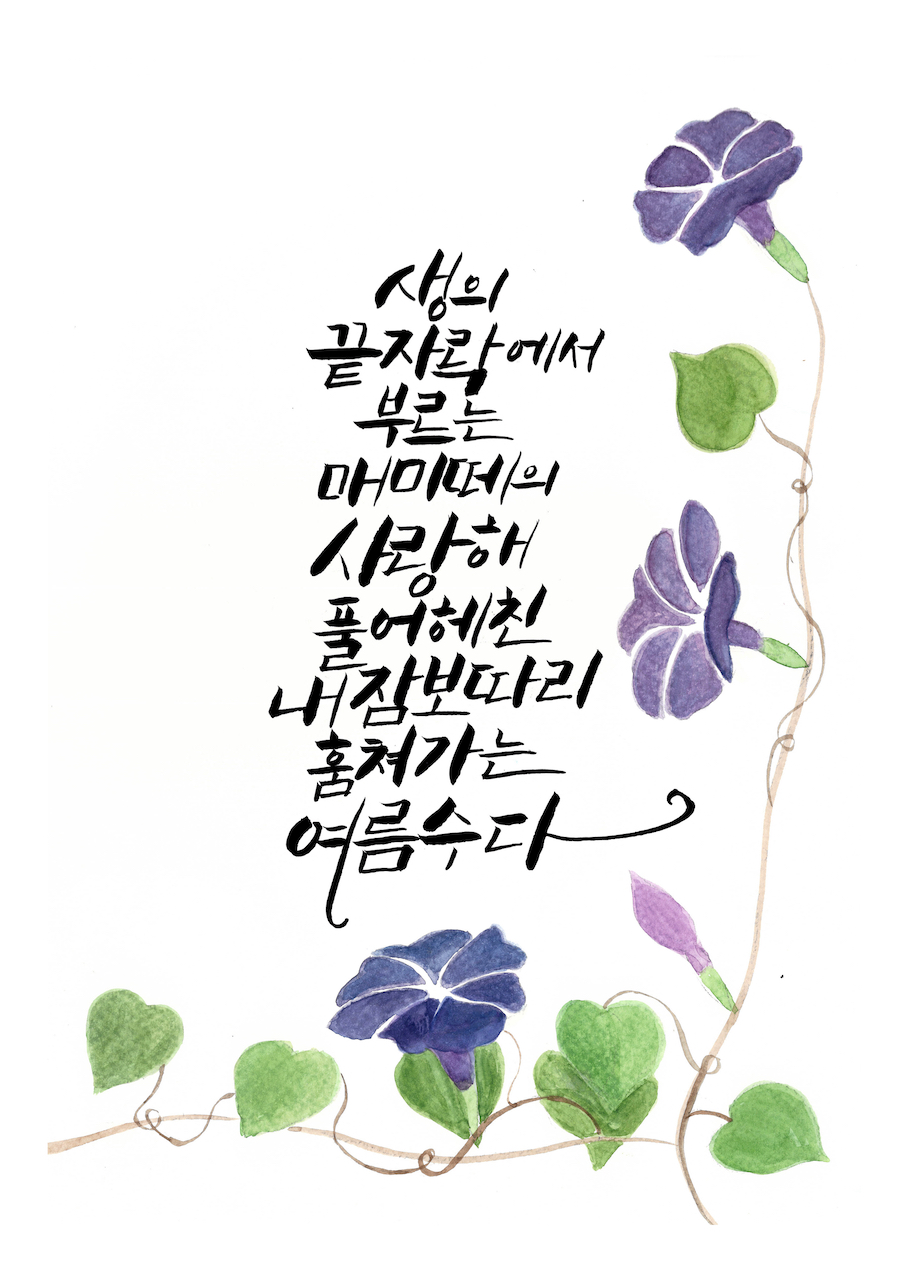 생의
끝자락에서
부르는
매미떼의
사랑해
풀어헤친
내잠보따리
훔쳐가는
여름수다